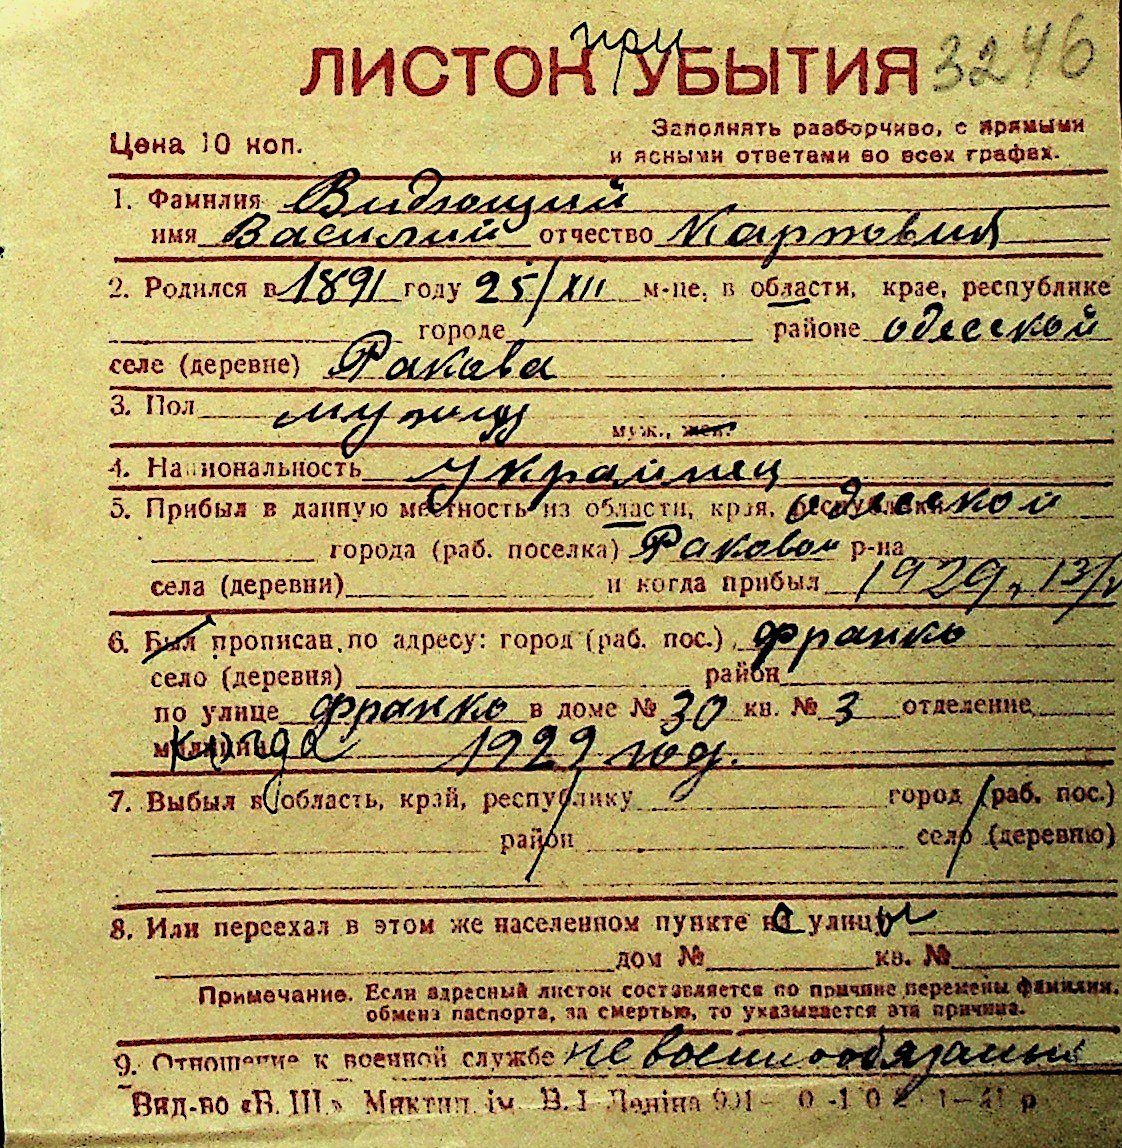 при
ЛИСТОК УБЫТИЯ 3246
Цена 10 коп.
Заполнять разборчиво, с прямыми
и ясными ответами во всех графах.
1. Фамилия Видющий
имя Василий отчество Карпович
2. Родился в 1891 году 25/XII м-це, в области, крае, республике
городе районе одесской
селе (деревне) Ракова
3. Пол мужчу
муж., жен.
4. Национальность украинец
5. Прибыл в данную местность из области, края, республики одесской
города (раб. поселка) Раковой р-на
села (деревни) и когда прибыл 1929, 13/
6. Был прописан по адресу: город (раб. пос.) франко
село (деревня) район
по улице франко в доме № 30 кв. № 3 отделение
милиции когда 1929 год.
7. Выбыл в область, край, республику город (раб. пос.)
район село (деревню)
8. Или переехал в этом же населенном пункте с улицы
дом № кв. №
Примечание. Если адресный листок составляется по причине перемены фамилии,
обмена паспорта, за смертью, то указывается эта причина.
9. Отношение к военной службе не военнообязаный
Вид-во «В. Ш.» Миктип. ім. В. І Леніна